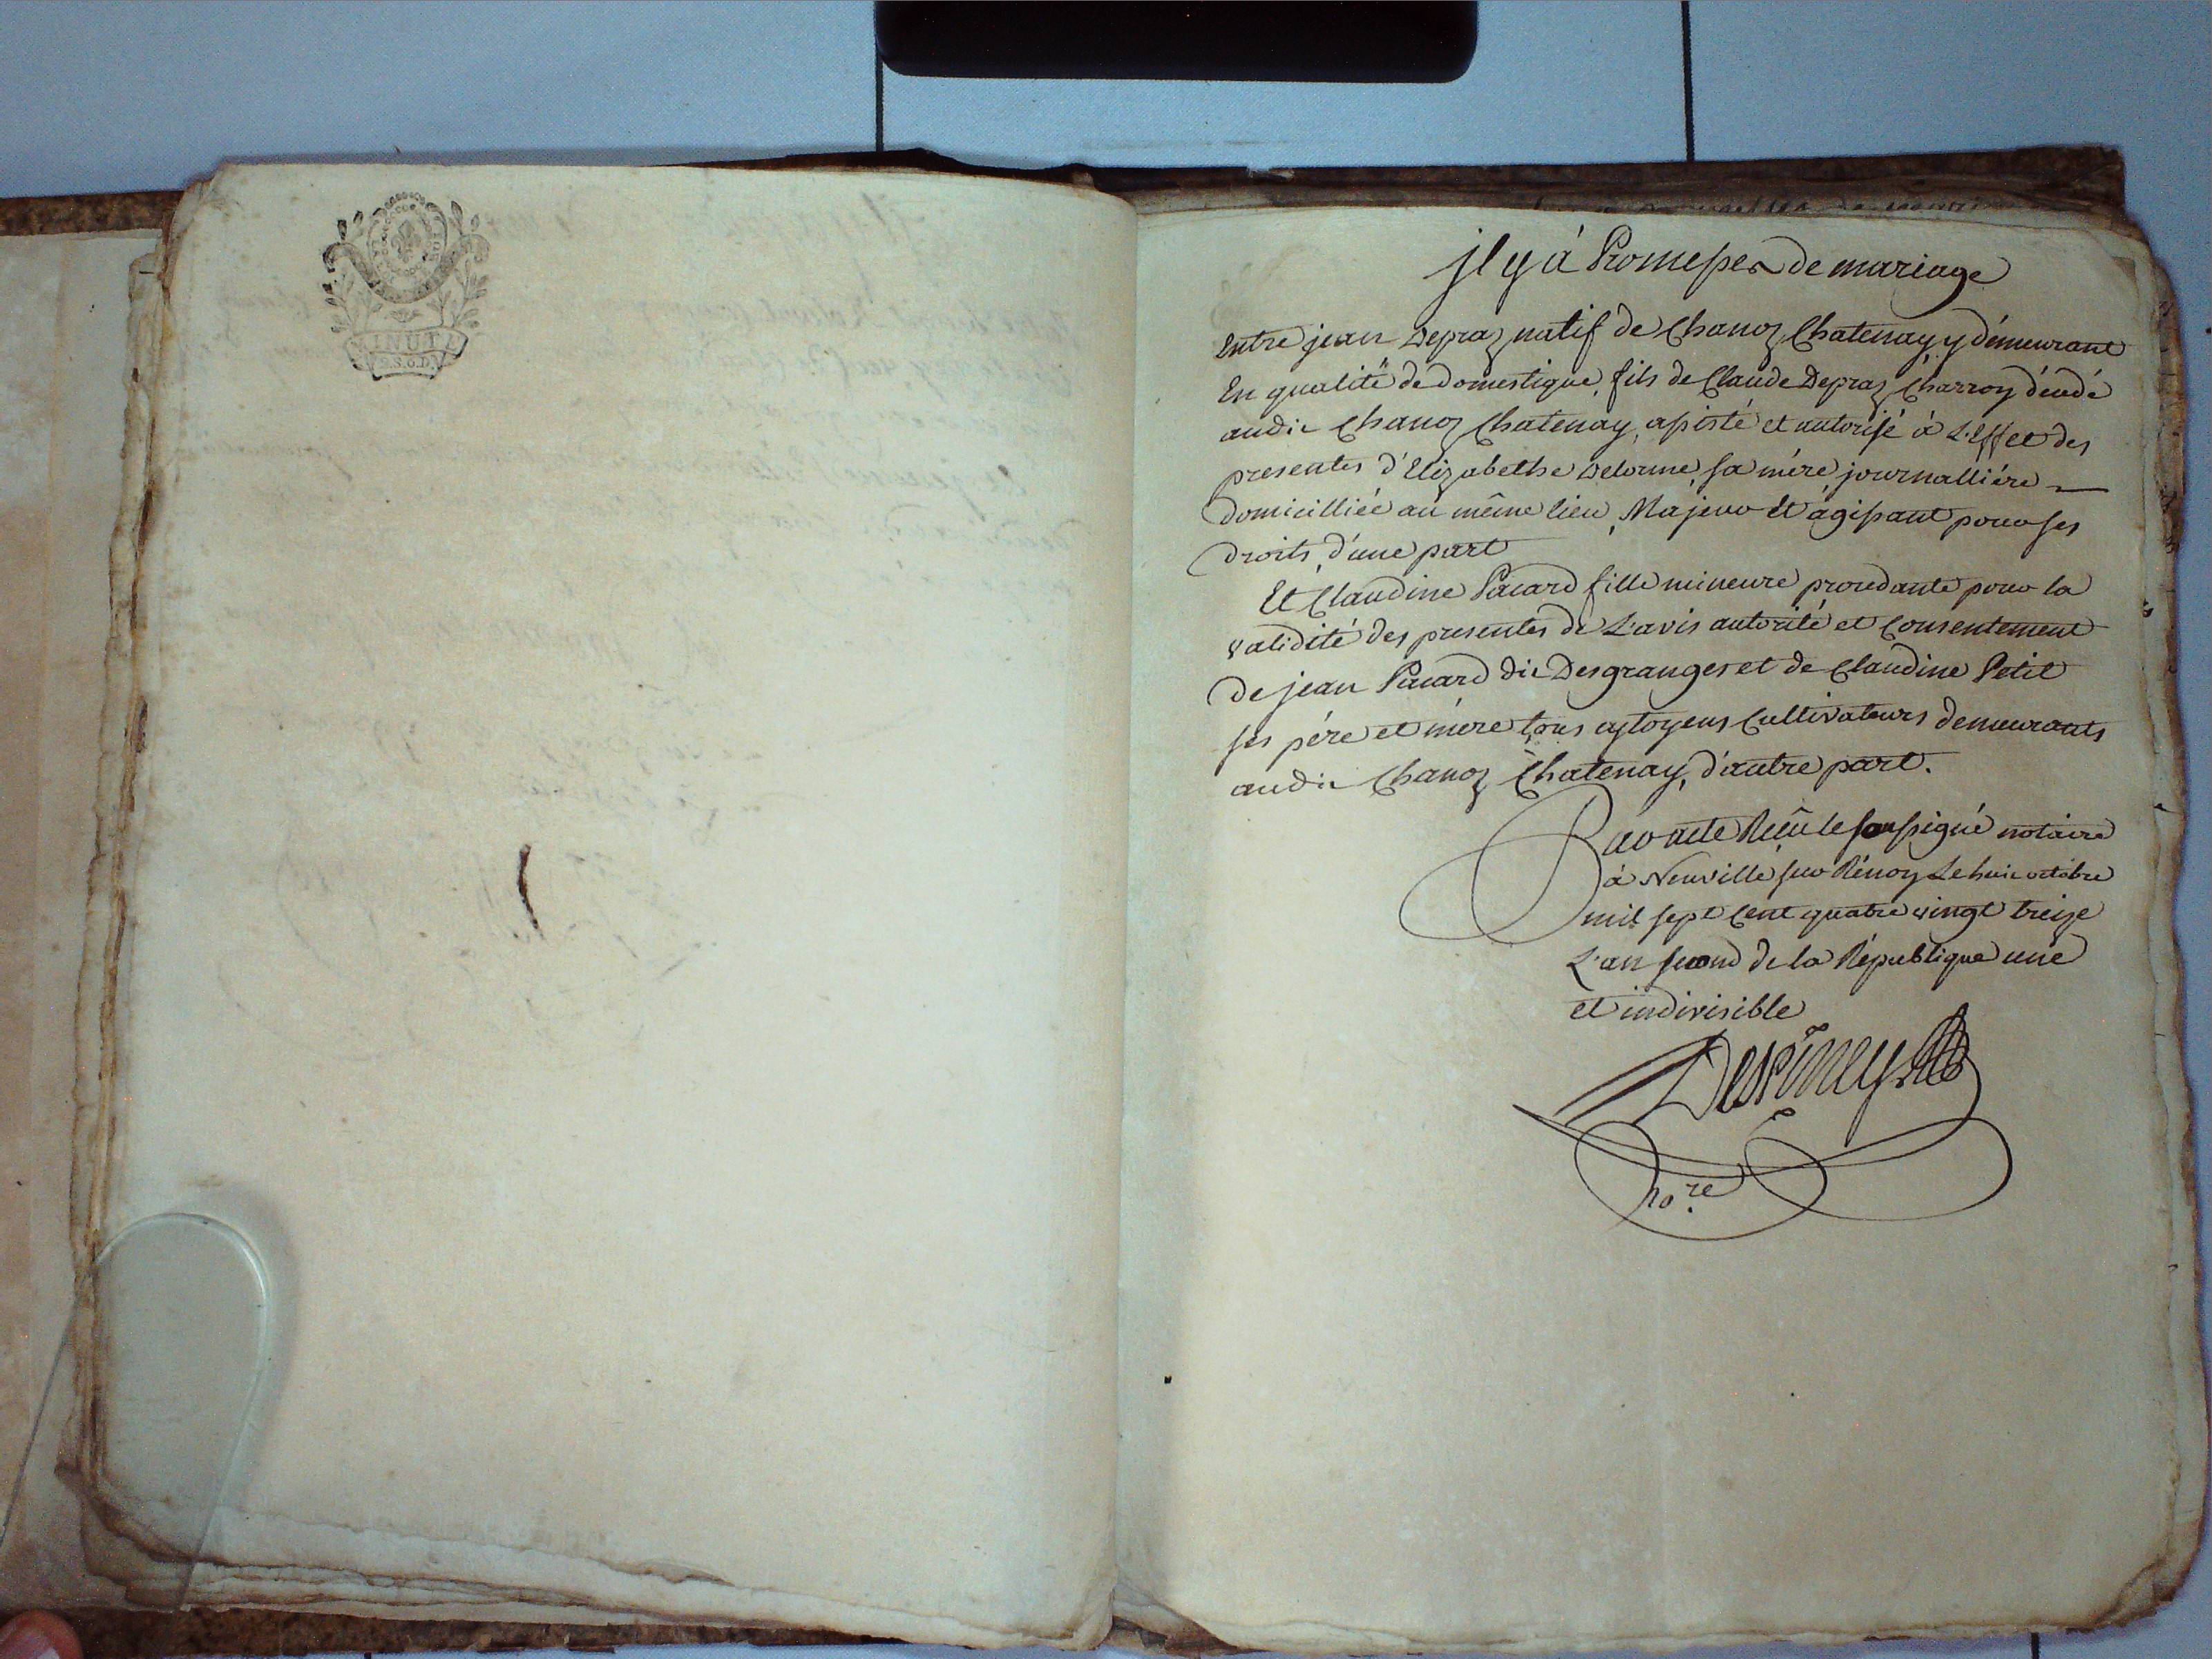 MINUTE
jl y á Promesses de mariage
Entre jean Depraz natif de Chanoz Chatenay, y démeurant
En qualité de domestique, fils de Claude Depraz Charron décédé
audit Chanoz Chatenay, assisté et autorisé à L'effet des
presentes d'Elizabethe Delorme, sa mére, journalliére
domicilliée au même lieu, Majeur et agissant pour ses
droits, d'une part
Et Claudine Pacard fille mineure procedante pour la
validité des presentes de L'avis autorité et Consentement
de jean Pacard dit Desgranges et de Claudine Petit
ses pére et mére tous cytoyens Cultivateurs demeurants
audit Chanoz Chatenay, d'autre part.
Par acte Reçû le soussigné notaire
à Neuville sur Renon Le huit octobre
mil sept Cent quatre vingt treize
L'an second de la République une
et indivisible
no.re